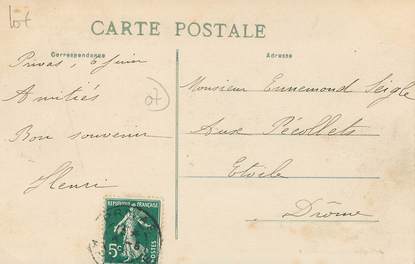 lot
CARTE POSTALE
Correspondance
Adresse
Privas,
Amitiés
Bon souvenir
Henri
07
Monsieur Ennemond Seigle
Aux Récollets
Etoile
Drôme
RÉPUBLIQUE FRANÇAISE
5c
POSTES